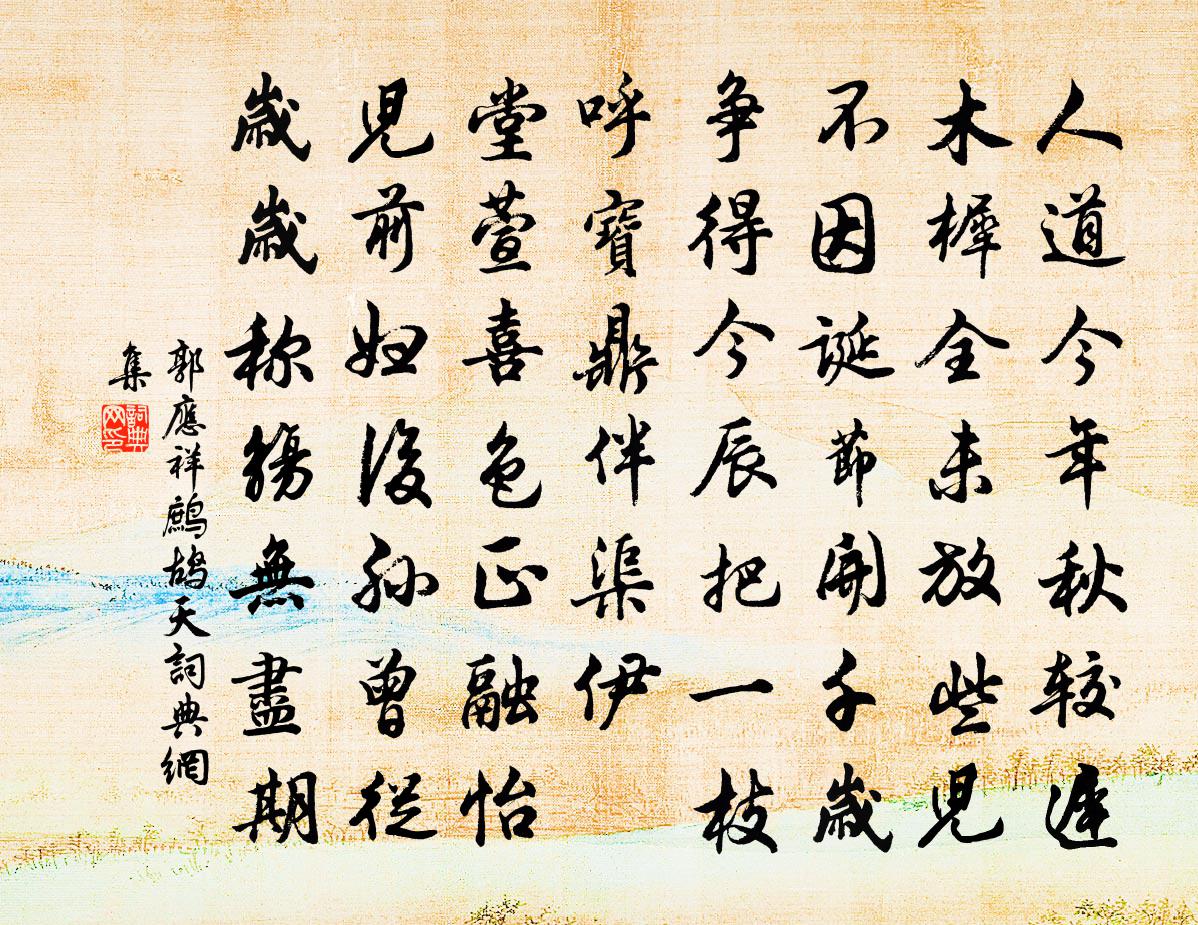 人道今年秋較遲
木樨全未放些兒
不因誕節開千歲
爭得今辰把一枝
呼寶鼎伴渠伊
堂萱喜色正融怡
兒前婦後孫曾從
歲歲稱觴無盡期
郭應祥鷓鴣天詞典網
集
詞典網印